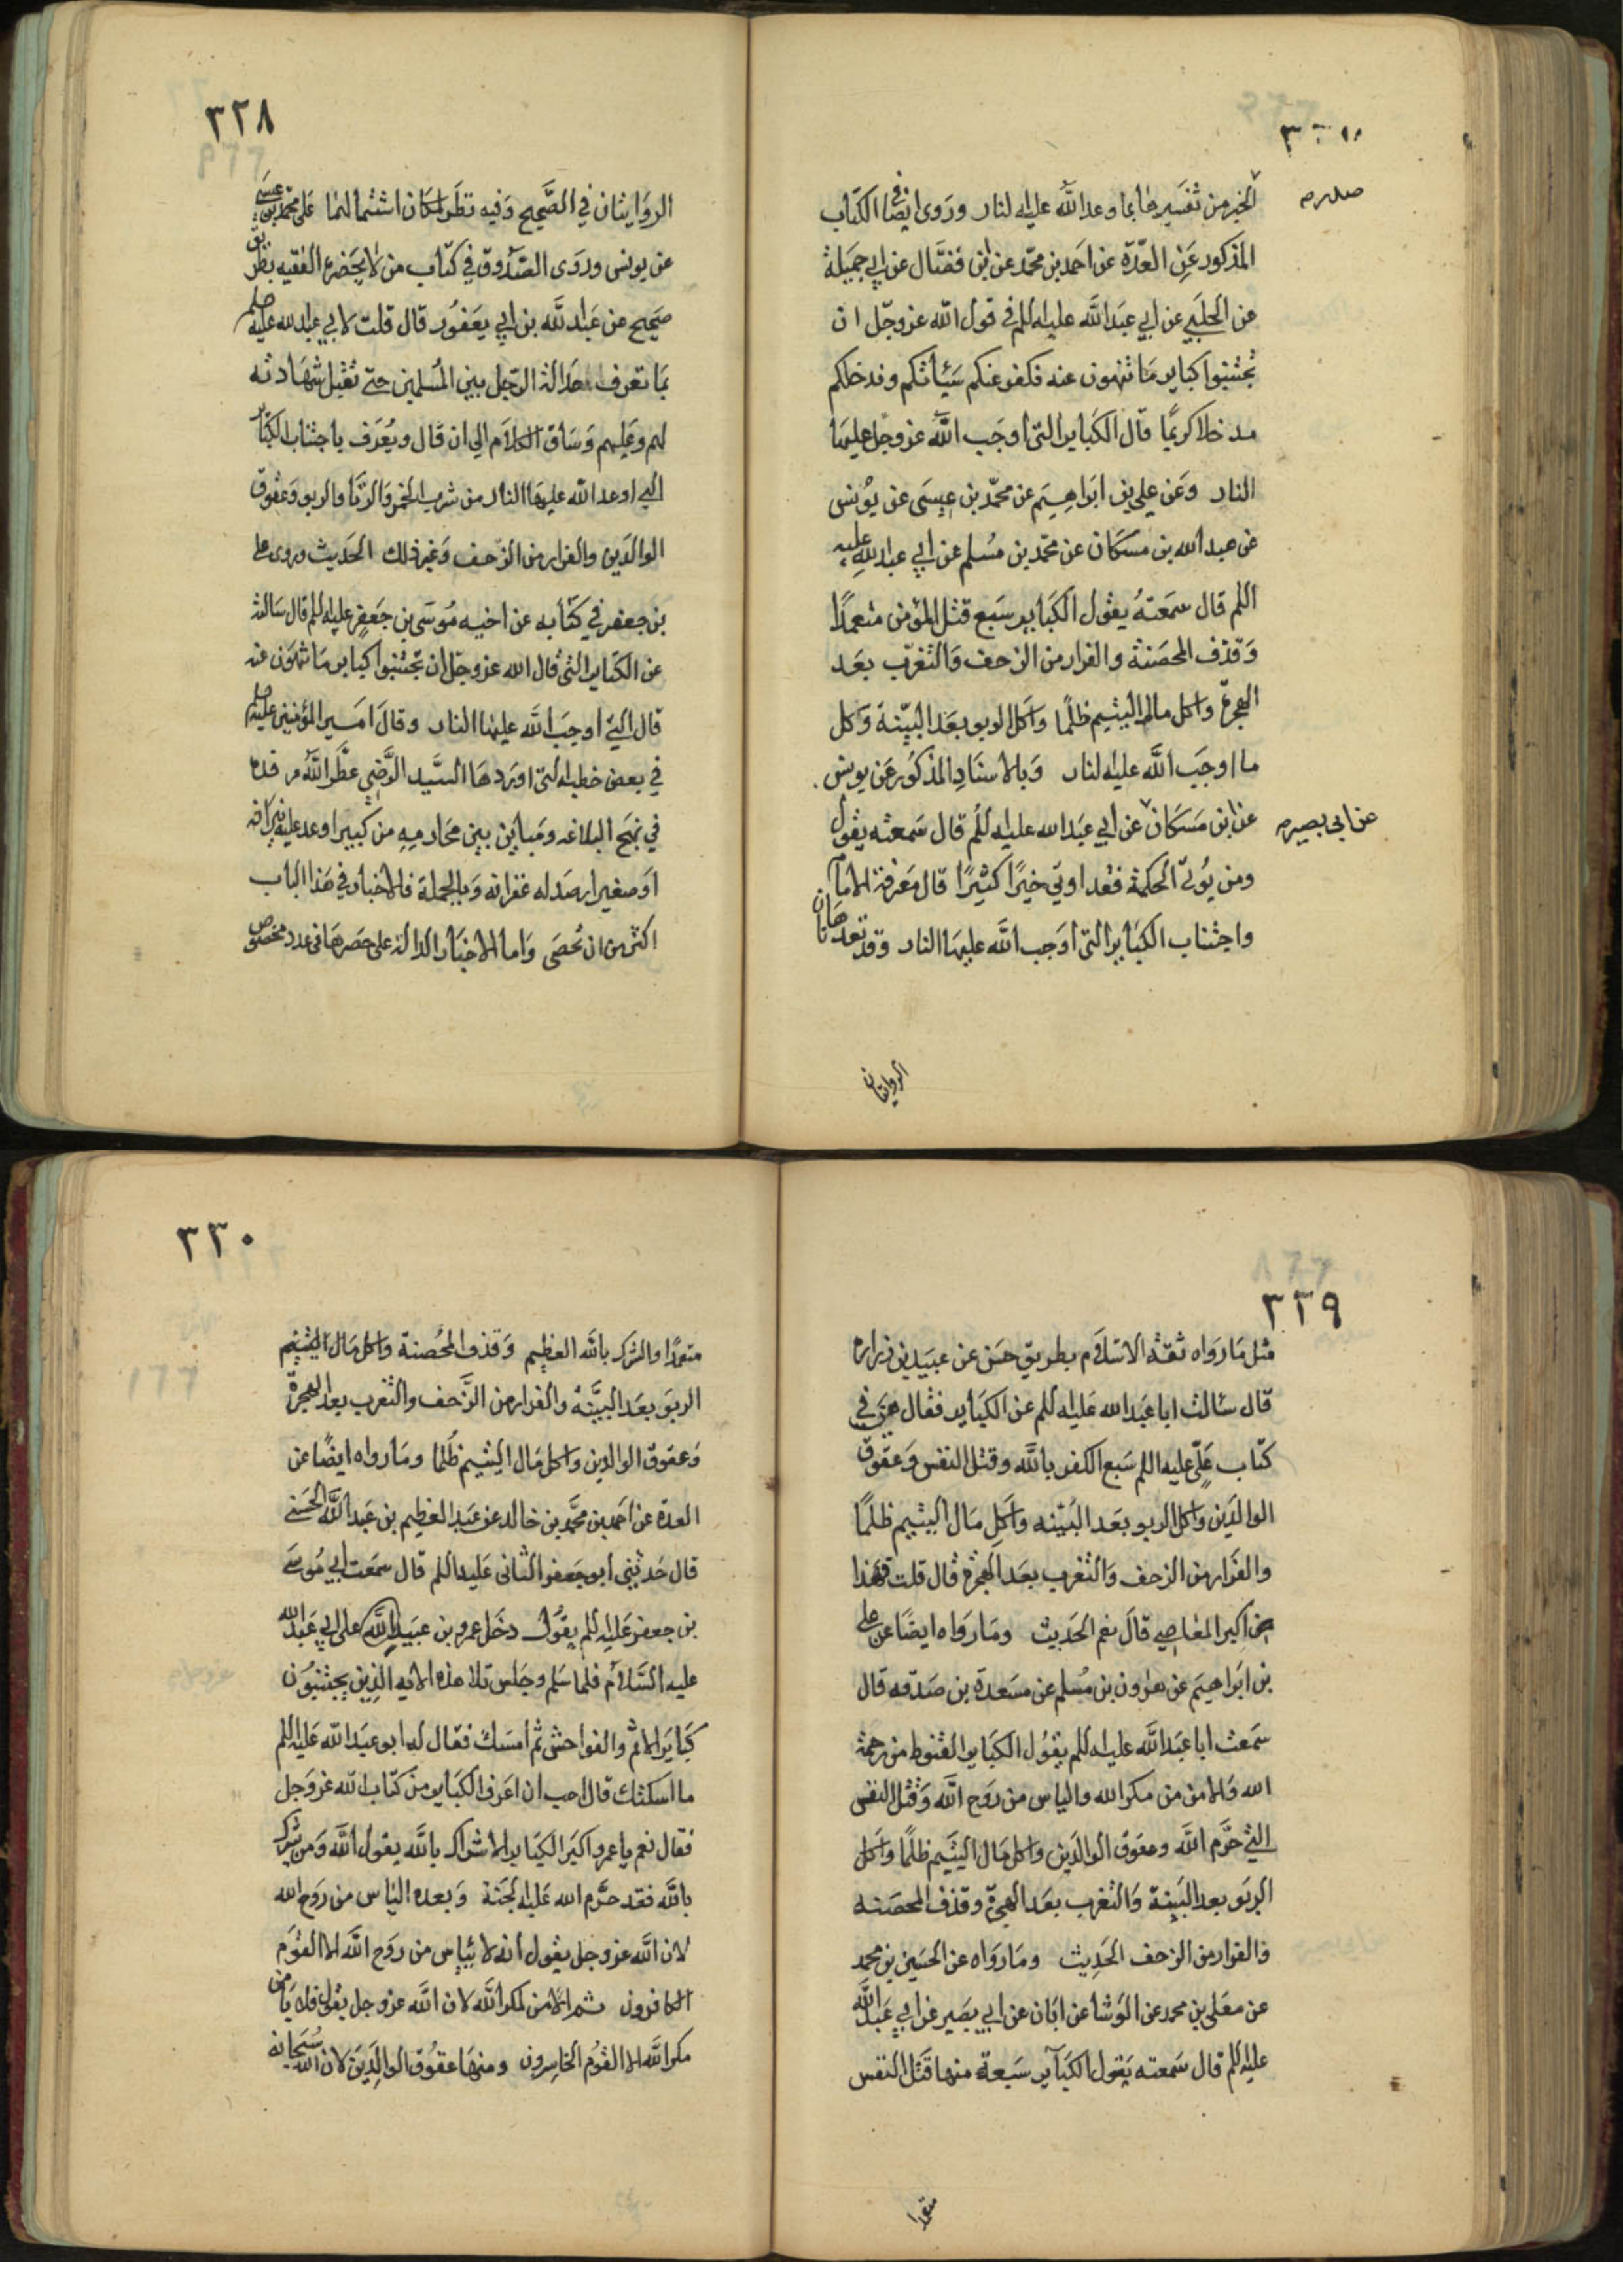 صدر م
الخبر من تفسيرها بما وعد الله عليه النار وروى ايضا في الكتاب
المذكور عن العدّة عن احمد بن محمّد عن ابن فضّال عن ابي جميلة
عن الحلبي عن ابي عبد الله عليه اللم في قول الله عز وجل ان
تجتنبوا كباير ما تنهون عنه نكفر عنكم سيئاتكم وندخلكم
مدخلا كريما قال الكباير التي اوجب الله عز وجل عليها
النار وعن علي بن ابراهيم عن محمّد بن عيسى عن يونس
عن عبد الله بن مسكان عن محمّد بن مسلم عن ابي عبد الله عليه
اللم قال سمعته يقول الكباير سبع قتل المؤمن متعمدًا
وقذف المحصنة والفرار من الزحف والتغرّب بعد
الهجرة واكل مال اليتيم ظلمًا واكل الربو بعد البيّنة وكل
ما اوجب الله عليه النار وبالاسناد المذكور عن يونس
عن ابن مسكان عن ابي عبد الله عليه اللم قال سمعته يقول
عن ابى بصير م
ومن يؤتى الحكمة فقد اوتي خيرًا كثيرًا قال معرفة الامام
واجتناب الكباير التي اوجب الله عليها النار وقد تعد هاتان
الروايتان
٣٢٨
الروايتان في الصّحيح وفيه نظر لمكان اشتمالهما على محمّد بن عيسى
عن يونس وروى الصّدوق في كتاب من لا يحضره الفقيه بطريق
صحيح عن عبد الله بن ابي يعفور قال قلت لابي عبد الله عليه
بما تعرف عدالة الرجل بين المسلمين حتى تقبل شهادته
لهم وعليهم وساق الكلام الى ان قال ويعرف باجتناب الكباير
التي اوعد الله عليها النار من شرب الخمر والزنا والربو وعقوق
الوالدين والفرار من الزحف وغير ذلك الحديث وروى على
بن جعفر في كتابه عن اخيه موسى بن جعفر عليه اللم قال سالته
عن الكباير التي قال الله عز وجل ان تجتنبوا كباير ما تنهون عنه
قال التي اوجب الله عليها النار وقال امير المؤمنين عليه
في بعض خطبه التي اوردها السّيد الرّضي عطّر الله مرقده
في نهج البلاغه ومباين بين محارمه من كبير اوعد عليه نيرانه
او صغير ارصد له غفرانه وبالجملة فالاخبار في هذا الباب
اكثر من ان تحصى واما الاخبار الدالة على حصرها في عدد مخصوص
٣٢٩
مثل ما رواه ثقة الاسلام بطريق حسن عن عبيد بن زرارة
قال سالت ابا عبد الله عليه اللم عن الكباير فقال هن في
كتاب علي عليه اللم سبع الكفر بالله وقتل النفس وعقوق
الوالدين واكل الربو بعد البيّنه واكل مال اليتيم ظلمًا
والفرار من الزحف والتغرب بعد الهجرة قال قلت فهذا
من اكبر المعاصي قال نعم الحديث وما رواه ايضًا عن علي
بن ابراهيم عن هرون بن مسلم عن مسعدة بن صدقه قال
سمعت ابا عبد الله عليه اللم يقول الكباير القنوط من رحمة
الله والامن من مكر الله والياس من روح الله وقتل النفس
التي حرّم الله وعقوق الوالدين واكل مال اليتيم ظلمًا واكل
الربو بعد البينة والتغرب بعد الهجرة وقذف المحصنه
والفرار من الزحف الحديث وما رواه عن الحسين بن محمد
عن معلى بن محمد عن الوشا عن ابان عن ابي بصير عن ابي عبد الله
عليه اللم قال سمعته يقول الكباير سبعة منها قتل النفس
متعمدا
٣٣٠
متعمدًا والشرك بالله العظيم وقذف المحصنة واكل مال اليتيم
الربو بعد البيّنة والفرار من الزّحف والتغرب بعد الهجرة
وعقوق الوالدين واكل مال اليتيم ظلما وما رواه ايضًا عن
العدة عن احمد بن محمّد بن خالد عن عبد العظيم بن عبد الله الحسني
قال حدثني ابو جعفر الثاني عليه اللم قال سمعت ابي موسى
بن جعفر عليه اللم يقول دخل عمرو بن عبيد الله على ابي عبد الله
عليه السّلام فلما سلم وجلس تلا هذه الايه الذين يجتنبون
كباير الاثم والفواحش ثم امسك فقال له ابو عبد الله عليه اللم
ما اسكتك قال احب ان اعرف الكباير من كتاب الله عز وجل
فقال نعم يا عمرو اكبر الكباير الاشراك بالله يقول الله ومن يشرك
بالله فقد حرّم الله عليه الجنة وبعده الياس من روح الله
لان الله عز وجل يقول انه لا ييأس من روح الله الا القوم
الكافرون ثم الامن لمكر الله لان الله عز وجل يقول فلا يامن
مكر الله الا القوم الخاسرون ومنها عقوق الوالدين لان الله سبحانه